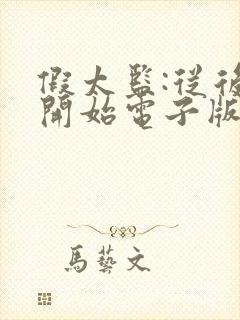 假太監:從後
開始電子版
馬藝文